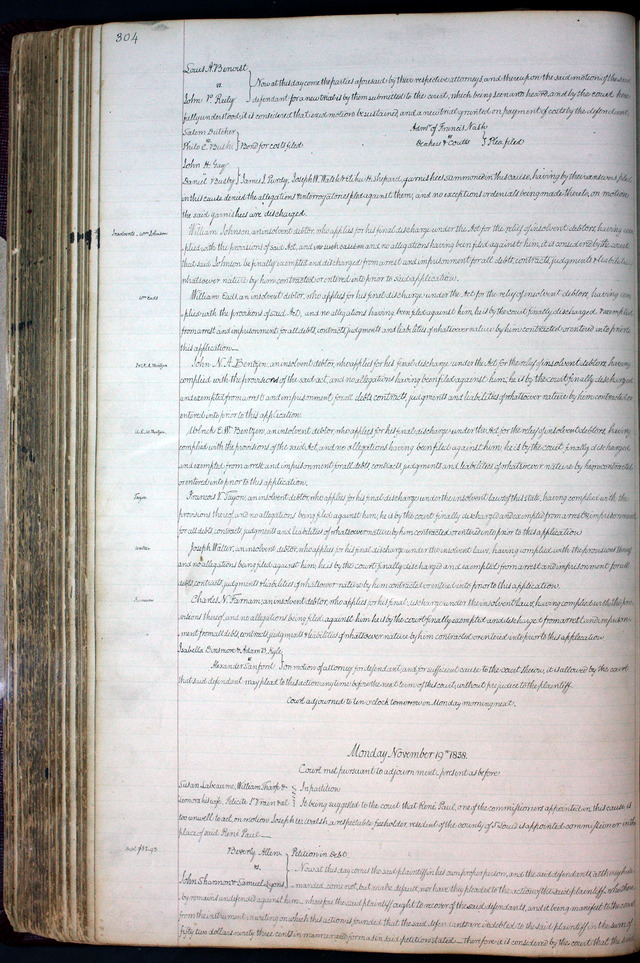 304
Louis A. Benoist
vs.
Now at this day come the parties aforesaid by their respective attorneys, and thereupon the said motion of the said
John P. Reily defendant for a new trial is by them submitted to the court, which being seen and heard, and by the court here
fully understood, it is considered that said motion be sustained, and a new trial granted on payment of costs by the defendant.
Salem Butcher
vs.
Philo C. Bushi Bond for costs filed.
Admr. of Francis Nash
vs
& Coutts Plea filed
John H. Gay
vs
Daniel Busby James J. Purdy, Joseph W. Walsh & Elihu H. Shepard, garnishees summoned in this cause, having by their answers filed
in this cause denied the allegations & interrogatories filed against them, and no exceptions or denials being made thereto, on motion
the said garnishees are discharged.
Insolvents. Wm Johnson
William Johnson, an insolvent debtor, who applies for his final discharge under the Act for the relief of insolvent debtors, having com-
plied with the provisions of said Act, and no allegations having been filed against him, it is considered by the court
that said Johnson be finally exempted and discharged from arrest and imprisonment for all debts, contracts, judgments & liabilities
whatsoever nature by him contracted or entered into prior to said application.
Wm Eads
William Eads, an insolvent debtor, who applies for his final discharge under the Act for the relief of insolvent debtors, having com-
plied with the provisions of said Act, and no allegations having been filed against him, he is by the court finally discharged & exempted
from arrest and imprisonment for all debts, contracts, judgments and liabilities of whatsoever nature by him contracted or entered into prior to
this application.
Jno. N. A. Bentzen
John N. A. Bentzen, an insolvent debtor, who applies for his final discharge under the Act for the relief of insolvent debtors, having
complied with the provisions of the said act, and no allegations having been filed against him, he is by the court finally discharged
and exempted from arrest and imprisonment for all debts contracts, judgments and liabilities of whatsoever nature by him contracted or
entered into prior to this application.
Bentzen
E. W. Bentzen, an insolvent debtor, who applies for his final discharge under the Act for the relief of insolvent debtors, having
complied with the provisions of the said Act, and no allegations having been filed against him; he is by the court finally discharged
and exempted from arrest and imprisonment for all debts, contracts, judgment and liabilities of whatsoever nature by him contracted
or entered into prior to this application.
Tayon
Francois V. Tayon, an insolvent debtor, who applies for his final discharge under the insolvent laws of this state, having complied with the
provisions thereof, and no allegations being filed against him; he is by the court finally discharged and exempted from arrest & imprisonment
for all debts, contracts, judgments and liabilities of whatsoever nature by him contracted or entered into prior to this application.
Walter
Joseph Walter, an insolvent debtor, who applies for his final discharge under the insolvent laws, having complied with the provisions thereof
and no allegations being filed against him, he is by the court finally discharged and exempted from arrest and imprisonment for all
debts, contracts, judgments & liabilities of whatsoever nature by him contracted or entered into prior to this application.
Farnam
Charles N. Farnam, an insolvent debtor, who applies for his final discharge under the insolvent laws, having complied with the pro-
visions thereof, and no allegations being filed against him he is by the court finally exempted and discharged from arrest and imprison-
ment from all debts, contracts, judgments & liabilities of whatsoever nature by him contracted or entered into prior to this application.
Isabella Dinsmore & Adam D. Kyle
vs
Alexander Sanford On motion of attorney for defendant, and for sufficient cause to the court shewn, it is allowed by the court
that said defendant may plead to this action any time before the next term of this court, without prejudice to the plaintiff.
Court adjourned to ten o'clock tomorrow on Monday morning next.
Monday November 19th 1838.
Court met pursuant to adjournment, present as before.
Susan Labeaume, William Tharp & In partition
Leonora his wife, Felicité St Vrain et al. It being suggested to the court that René Paul, one of the commissioners appointed in this cause, is
too unwell to act, on motion Joseph W. Walsh a respectable freeholder, resident of the county of St Louis is appointed commissioner in the
place of said René Paul.
Beverly Allen Petition in Debt
vs.
Now at this day comes the said plaintiff in his own proper person, and the said defendants, although
John Shannon & Samuel Lyons demanded come not, but make default, nor have they pleaded to the action of the said plaintiff, who there-
by remains undefended against them, wherefore the said plaintiff ought to recover of the said defendants, and it being manifest to the court
from the instrument in writing on which this action is founded that the said defendants are indebted to the said plaintiff in the sum of
fifty two dollars ninety three cents in manner and form as in said petition stated. therefore it is considered by the court that the said